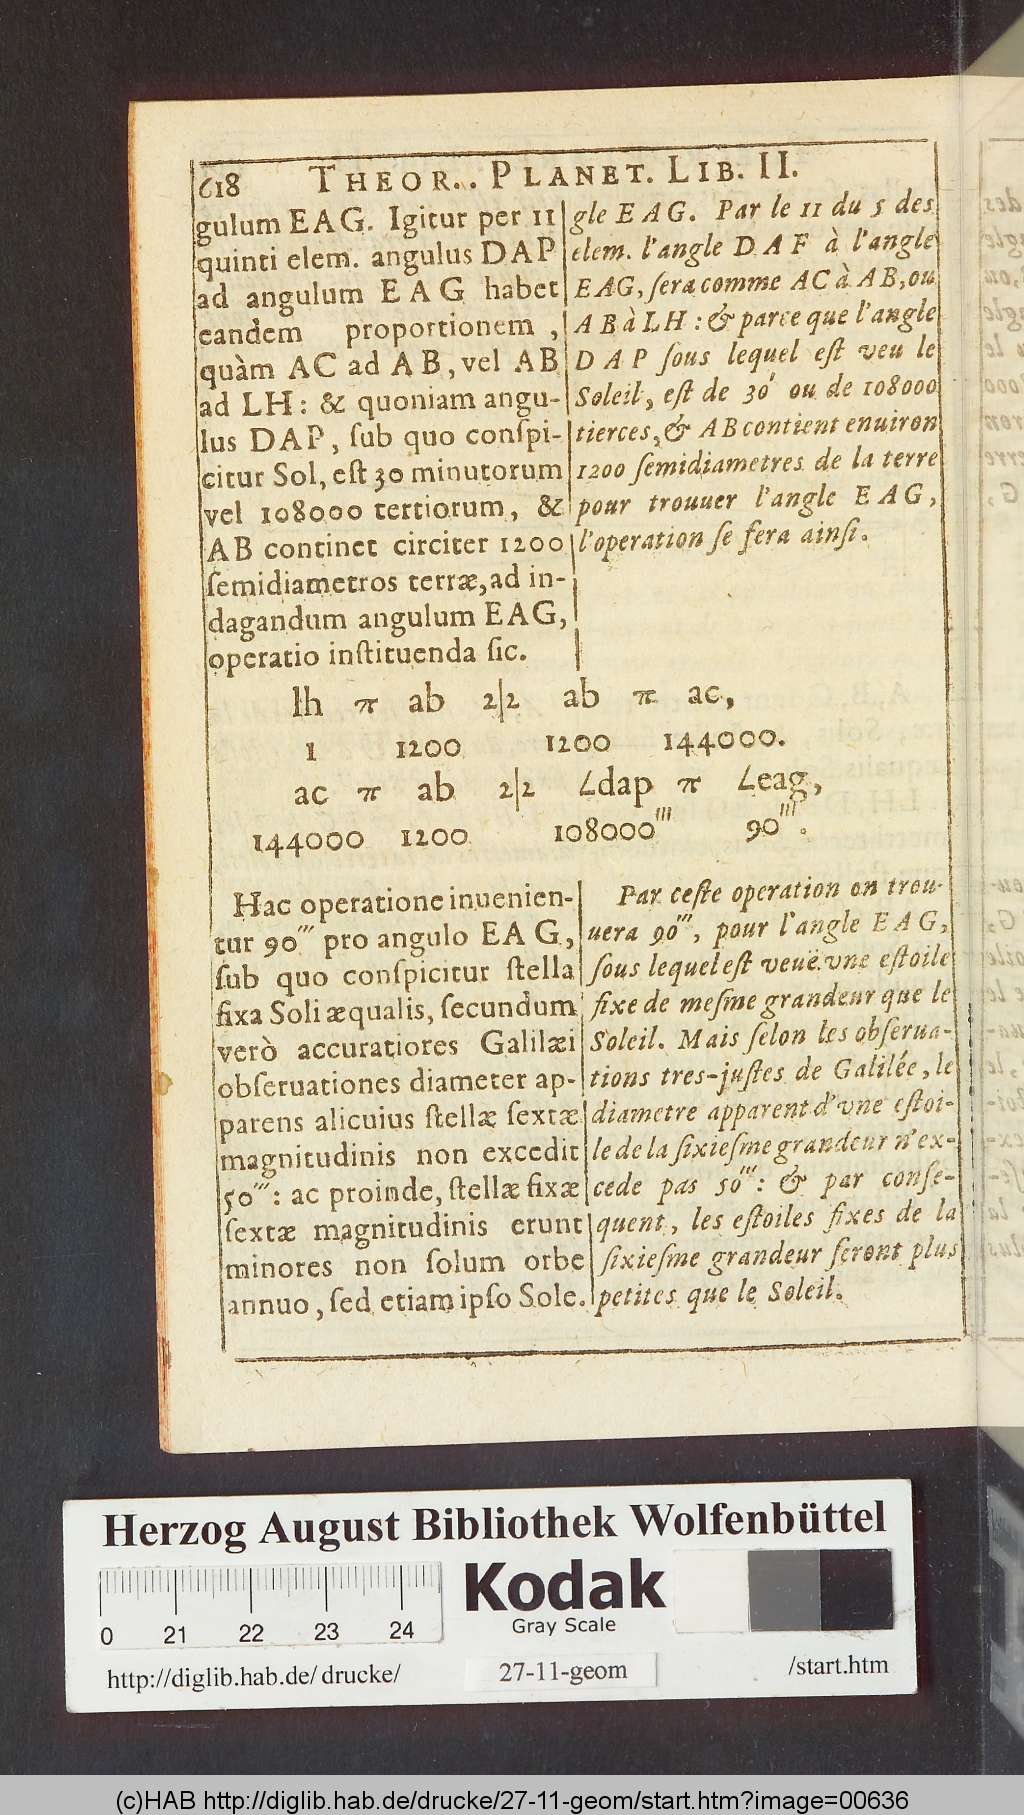 618 THEOR.. PLANET. LIB. II.
gulum EAG. Igitur per 11
quinti elem. angulus DAP
ad angulum EAG habet
eandem proportionem,
quàm AC ad AB, vel AB
ad LH: & quoniam angu-
lus DAP, ſub quo conſpi-
citur Sol, eſt 30 minutorum
vel 108000 tertiorum, &
AB continet circiter 1200
ſemidiametros terræ, ad in-
dagandum angulum EAG,
operatio inſtituenda ſic.
gle EAG. Par le 11 du 5 des
elem. l'angle DAF à l'angle
EAG, ſera comme AC à AB, ou
AB à LH: & parce que l'angle
DAP ſous lequel eſt veu le
Soleil, eſt de 30' ou de 108000
tierces, & AB contient enuiron
1200 ſemidiametres de la terre
pour trouuer l'angle EAG,
l'operation ſe fera ainſi.
lh π ab 2|2 ab π ac,
1 1200 1200 144000.
ac π ab 2|2 ∠dap π ∠eag,
144000 1200 108000''' 90'''.
Hac operatione inuenien-
tur 90''' pro angulo EAG,
ſub quo conſpicitur ſtella
fixa Soli æqualis, ſecundum
verò accuratiores Galilæi
obſeruationes diameter ap-
parens alicuius ſtellæ ſextæ
magnitudinis non excedit
50''': ac proinde, ſtellæ fixæ
ſextæ magnitudinis erunt
minores non ſolum orbe
annuo, ſed etiam ipſo Sole.
Par ceſte operation on trou-
uera 90''', pour l'angle EAG,
ſous lequel eſt veuë vne eſtoile
fixe de meſme grandeur que le
Soleil. Mais ſelon les obſerua-
tions tres-juſtes de Galilée, le
diametre apparent d'vne eſtoi-
le de la ſixieſme grandeur n'ex-
cede pas 50''': & par conſe-
quent, les eſtoiles fixes de la
ſixieſme grandeur ſeront plus
petites que le Soleil.
Herzog August Bibliothek Wolfenbüttel
0 21 22 23 24
Kodak
Gray Scale
http://diglib.hab.de/drucke/ 27-11-geom /start.htm
(c)HAB http://diglib.hab.de/drucke/27-11-geom/start.htm?image=00636